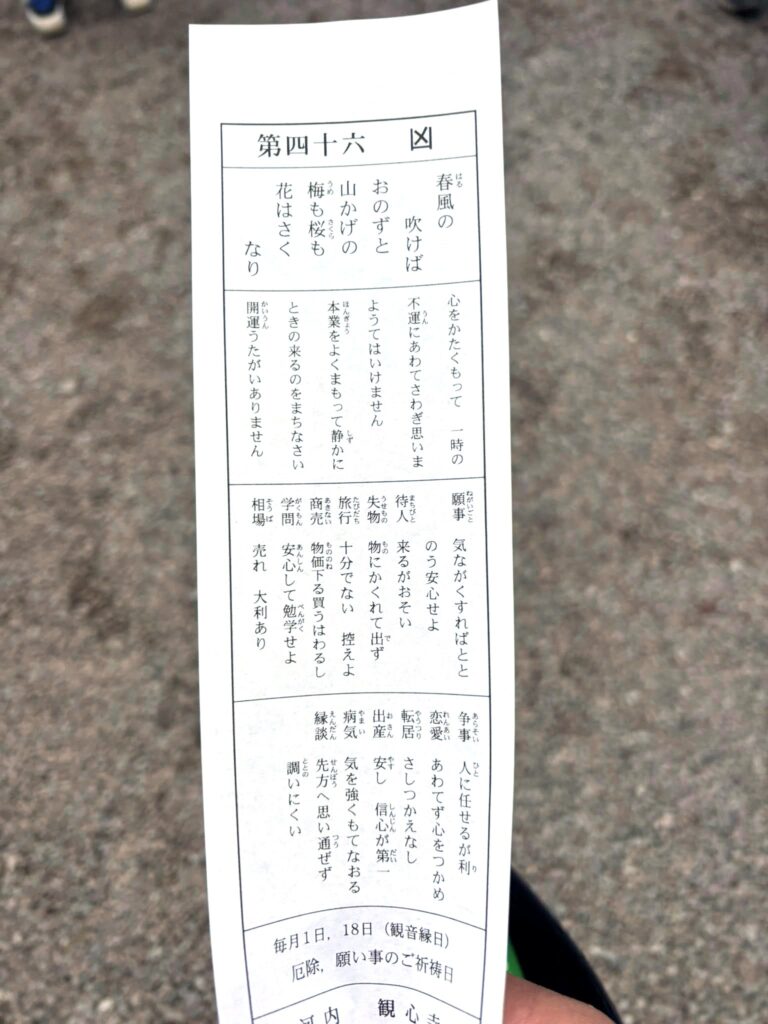 第四十六 凶
春風の
吹けば
おのずと
山かげの
梅も桜も
花はさく
なり
心をかたくもって 一時の
不運にあわてさわぎ思いま
ようてはいけません
本業をよくまもって静かに
ときの来るのをまちなさい
開運うたがいありません
願事 気ながくすればとと
のう安心せよ
待人 来るがおそい
失物 物にかくれて出ず
旅行 十分でない 控えよ
商売 物価下る買うはわるし
学問 安心して勉学せよ
相場 売れ 大利あり
争事 人に任せるが利
恋愛 あわてず心をつかめ
転居 さしつかえなし
出産 安し 信心が第一
病気 気を強くもてなおる
縁談 先方へ思い通ぜず
調いにくい
毎月1日, 18日 (観音縁日)
厄除, 願い事のご祈祷日
河内 観心寺